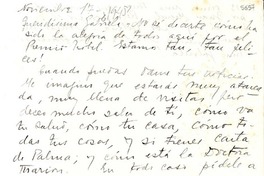 Noviembre 12 1945
5657
Queridísima Gabriela - No se decirte como ha
sido la alegría de todos aquí por el
Premio Nobel. Estamos tan, tan feli-
ces!
Cuando puedas dame tus noticias.
Me imagino que estarás muy atarea-
da, muy llena de visitas, pero
decer mucho saber de ti, como va
tu salud, como tu casa, como to-
das tus cosas, y si tienes carta
de Palma, y cómo está la Doctora
En todo caso pídele a